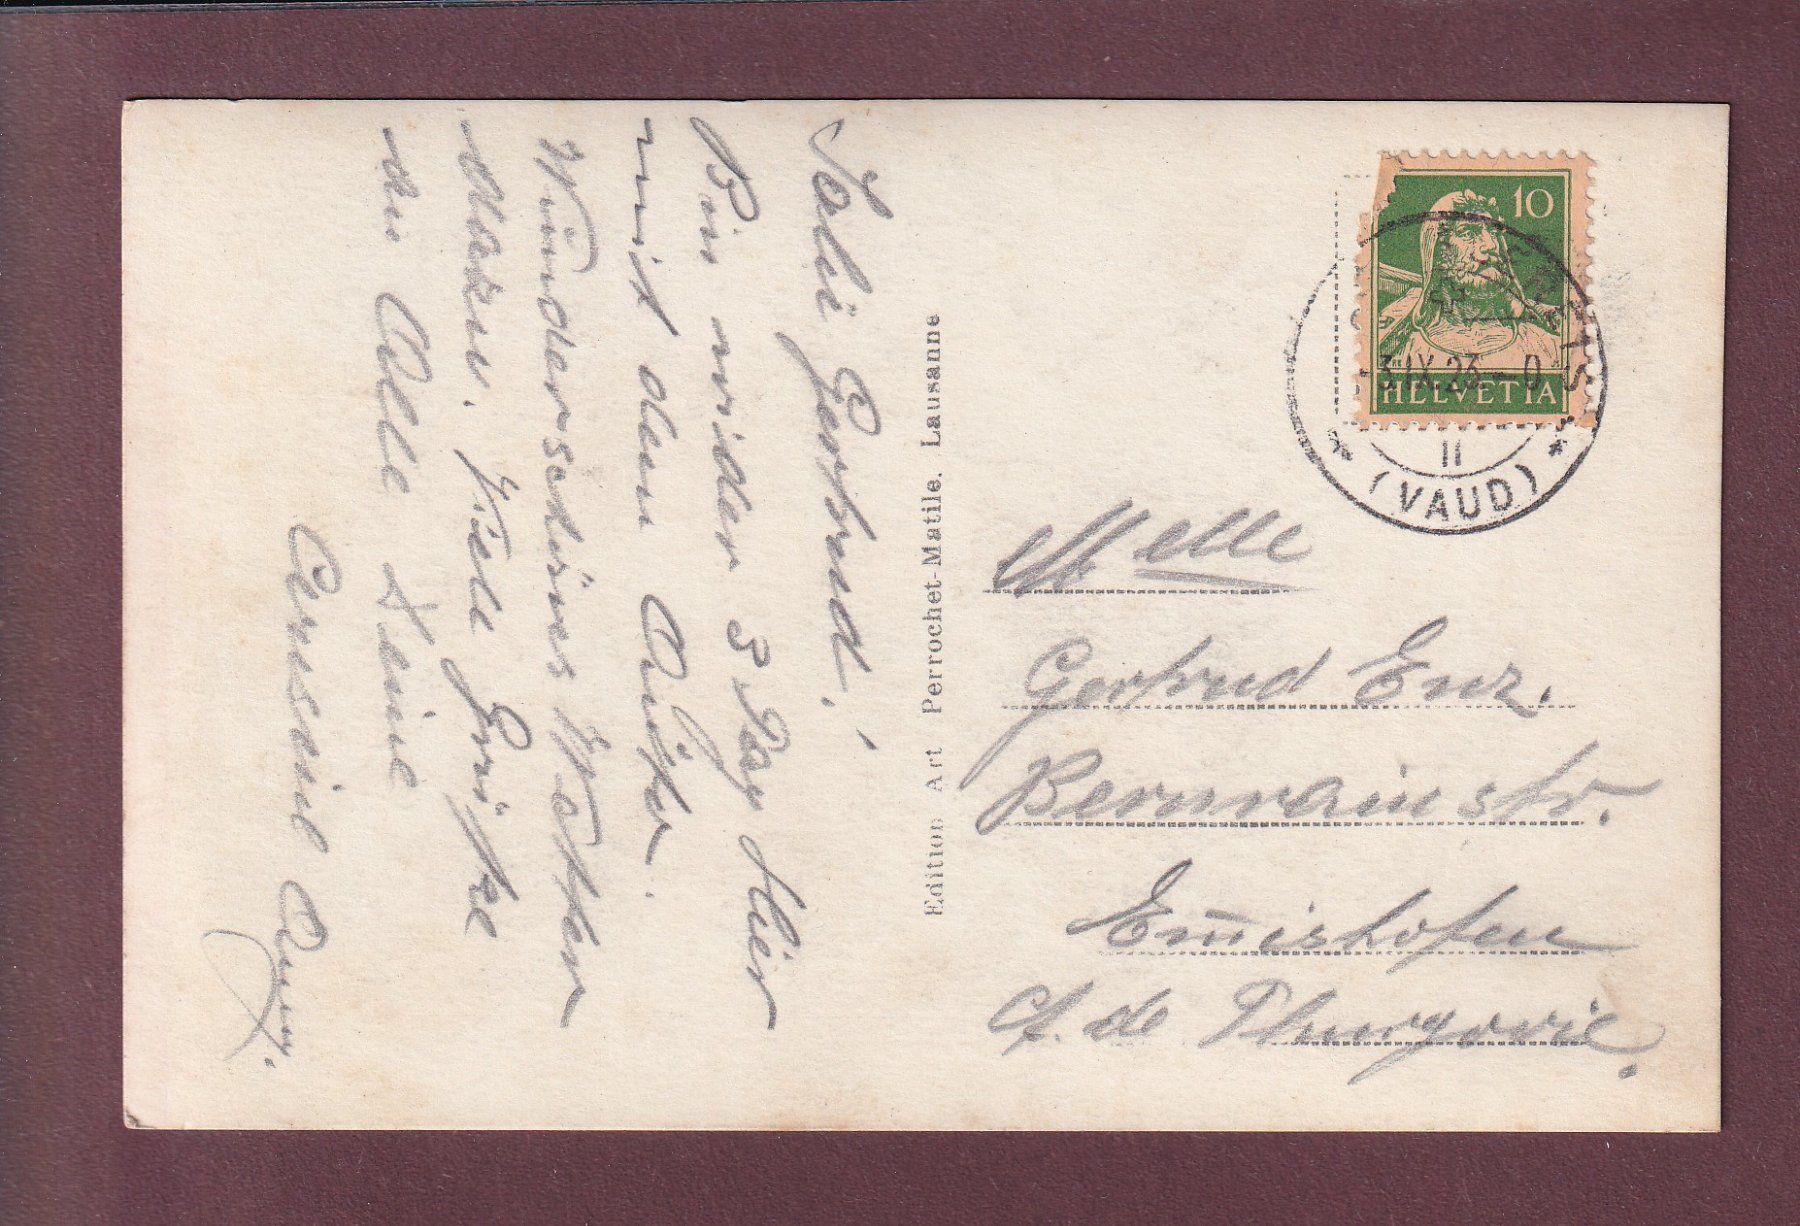 Sali Gertrud!
Bin wider 3 Tag hier
mit dem Auto.
Wunderschönes Wetter
dazu. Viele Grüsse
an Alle Deine
Edition Art Perrochet-Matile, Lausanne
10
HELVETIA
3.IX.23
II
(VAUD)
Melle
Gertrud Enz.
Bernrainstr.
Em̄ishofen
Ct. de Thurgovie.